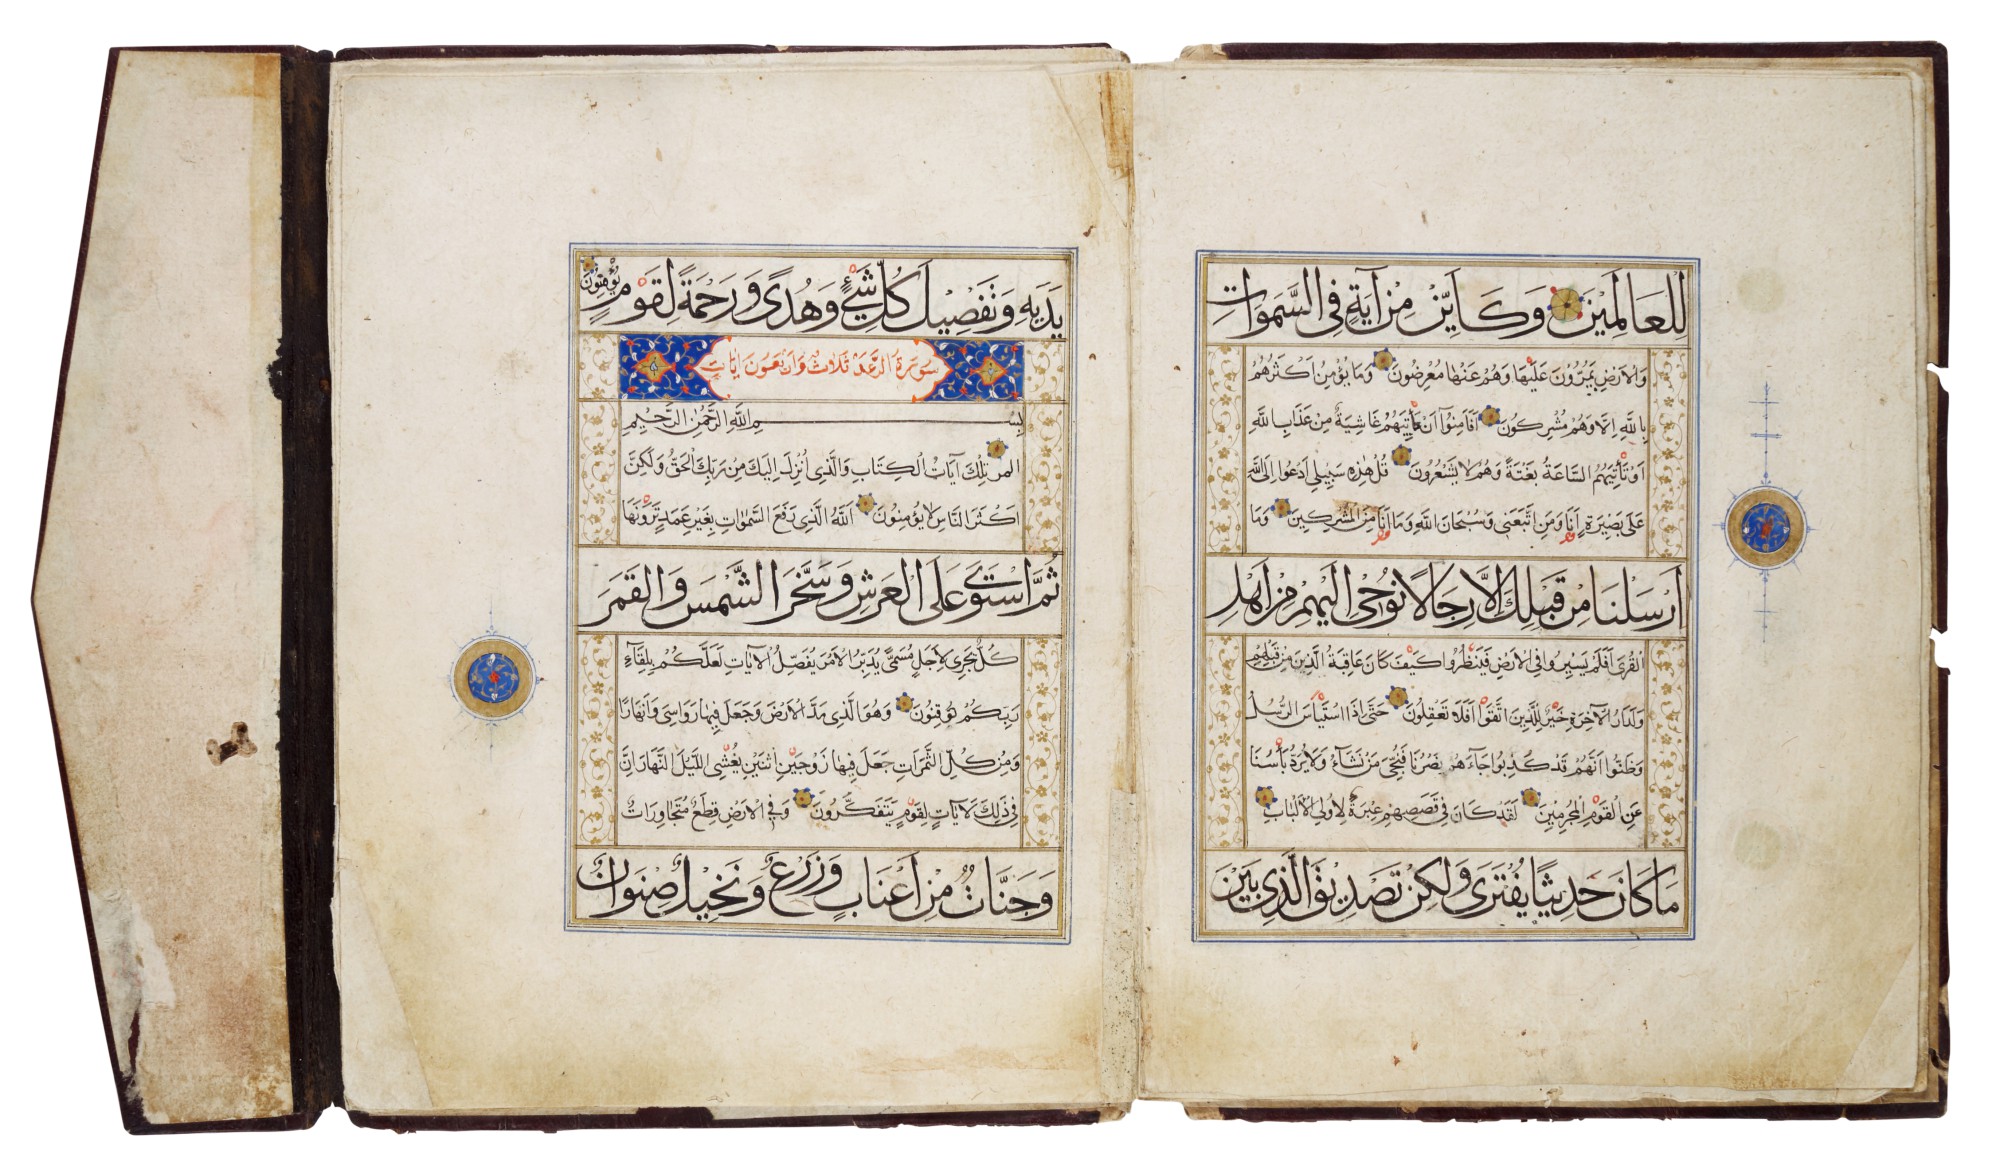 للعالمين وكاين من آية في السموات
والارض يمرون عليها وهم عنها معرضون وما يؤمن اكثرهم
بالله الا وهم مشركون افامنوا ان تأتيهم غاشية من عذاب الله
او تأتيهم الساعة بغتة وهم لا يشعرون قل هذه سبيلي ادعوا الى الله
على بصيرة انا ومن اتبعني وسبحان الله وما انا من المشركين وما
ارسلنا من قبلك الا رجالا نوحي اليهم من اهل
القرى افلم يسيروا في الارض فينظروا كيف كان عاقبة الذين من قبلهم
ولدار الآخرة خير للذين اتقوا افلا تعقلون حتى اذا استيأس الرسل
وظنوا انهم قد كذبوا جاءهم نصرنا فنجي من نشاء ولا يرد بأسنا
عن القوم المجرمين لقد كان في قصصهم عبرة لاولي الالباب
ما كان حديثا يفترى ولكن تصديق الذي بين
يديه وتفصيل كل شيء وهدى ورحمة لقوم يؤمنون
سورة الرعد ثلاث واربعون ايات
بسم الله الرحمن الرحيم
المر تلك آيات الكتاب والذي انزل اليك من ربك الحق ولكن
اكثر الناس لا يؤمنون الله الذي رفع السموات بغير عمد ترونها
ثم استوى على العرش وسخر الشمس والقمر
كل يجري لاجل مسمى يدبر الامر يفصل الآيات لعلكم بلقاء
ربكم توقنون وهو الذي مد الارض وجعل فيها رواسي وانهارا
ومن كل الثمرات جعل فيها زوجين اثنين يغشي الليل النهار ان
في ذلك لآيات لقوم يتفكرون وفي الارض قطع متجاورات
وجنات من اعناب وزرع ونخيل صنوان